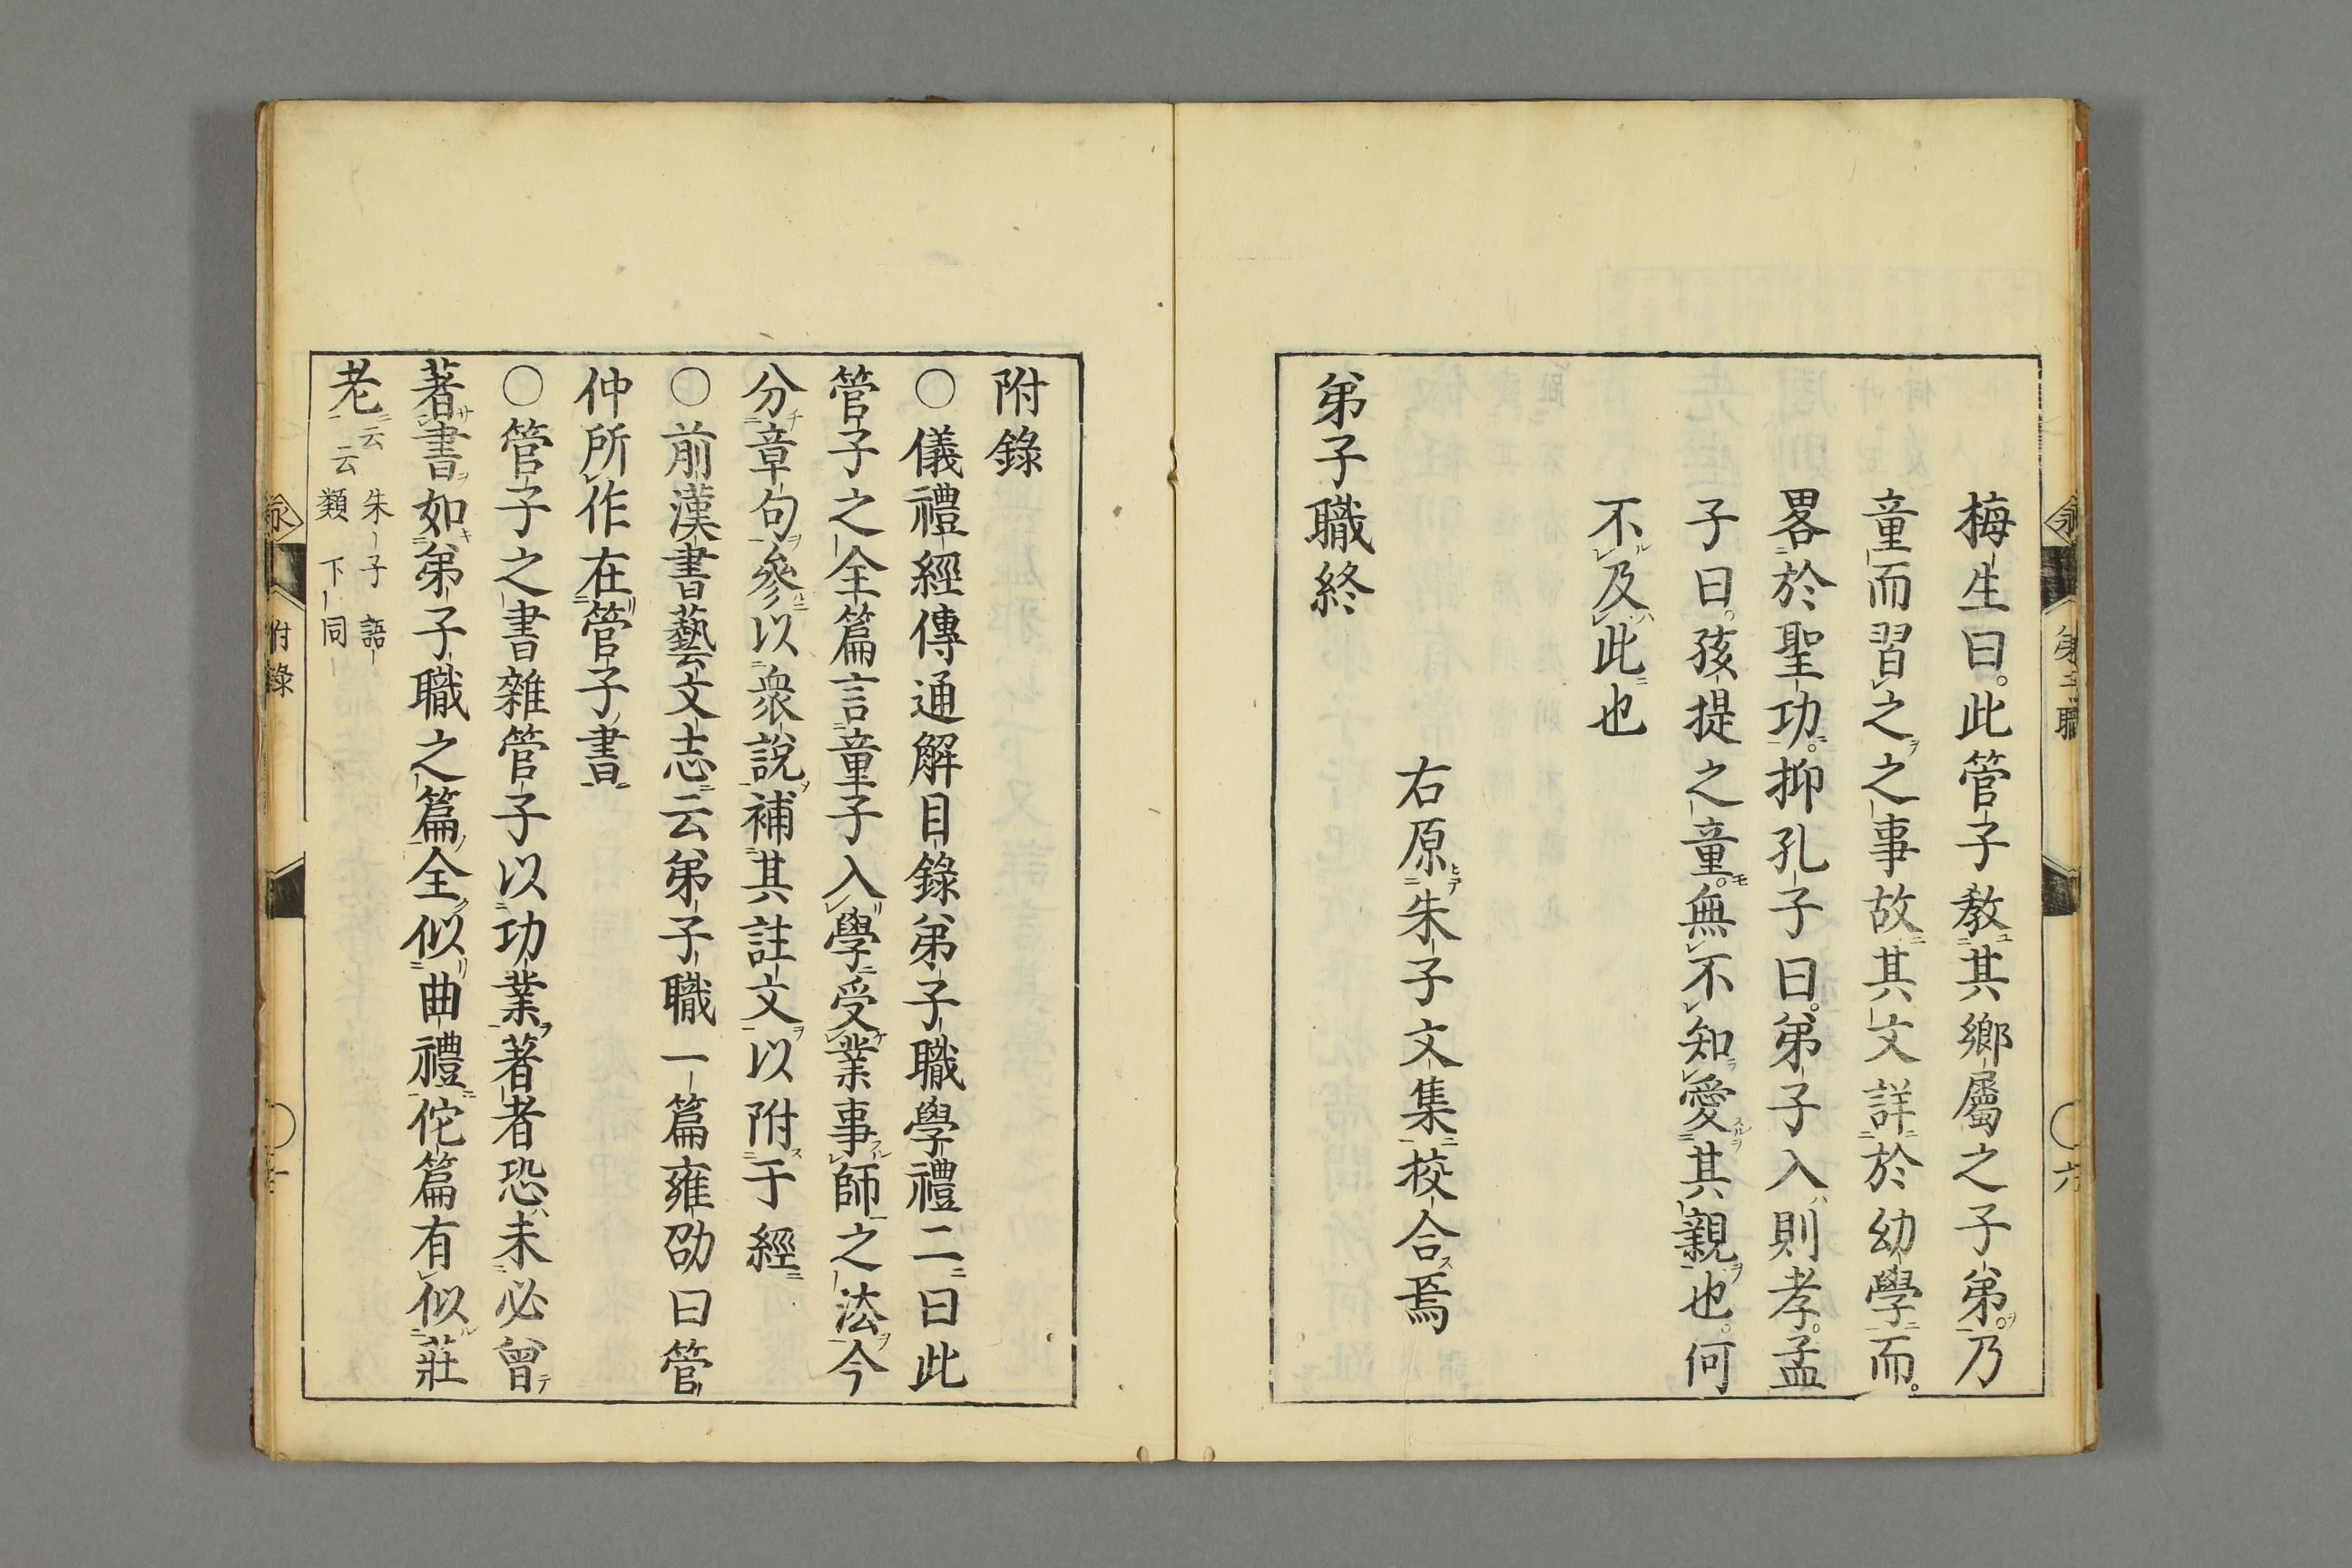 梅生曰。此管子教其鄉屬之子弟。乃
童而習之之事故其文詳於幼學而。
畧於聖功。抑孔子曰。弟子入則孝。孟
子曰。孩提之童。無不知愛其親也。何
不及此也
右原朱子文集挍合焉
弟子職終
附錄
〇儀禮經傳通解目錄弟子職學禮二曰此
管子之全篇言童子入學受業事師之法今
分章句參以衆說補其註文以附于經
〇前漢書藝文志云弟子職一篇雍劭曰管
仲所作在管子書
〇管子之書雜管子以功業著者恐未必曾
著書如弟子職之篇全似曲禮佗篇有似莊
老云云朱子語類下同
弟子職
六
附錄